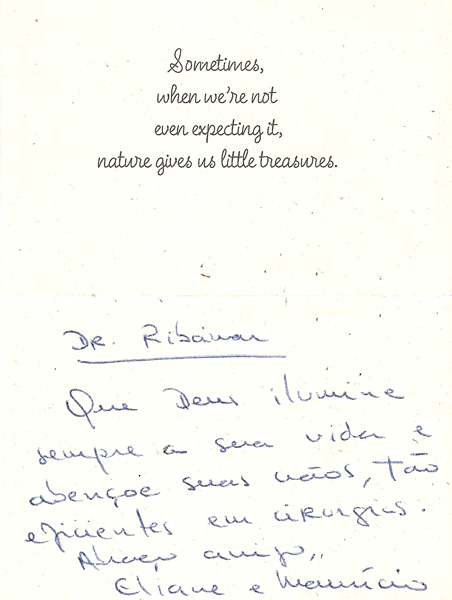 Sometimes,
when we're not
even expecting it,
nature gives us little treasures.
Dr. Ribamar
Que Deus ilumine
sempre a sua vida e
abençoe suas mãos, tão
eficientes em cirurgias.
Abraço amigo,,
Eliane e Maurício